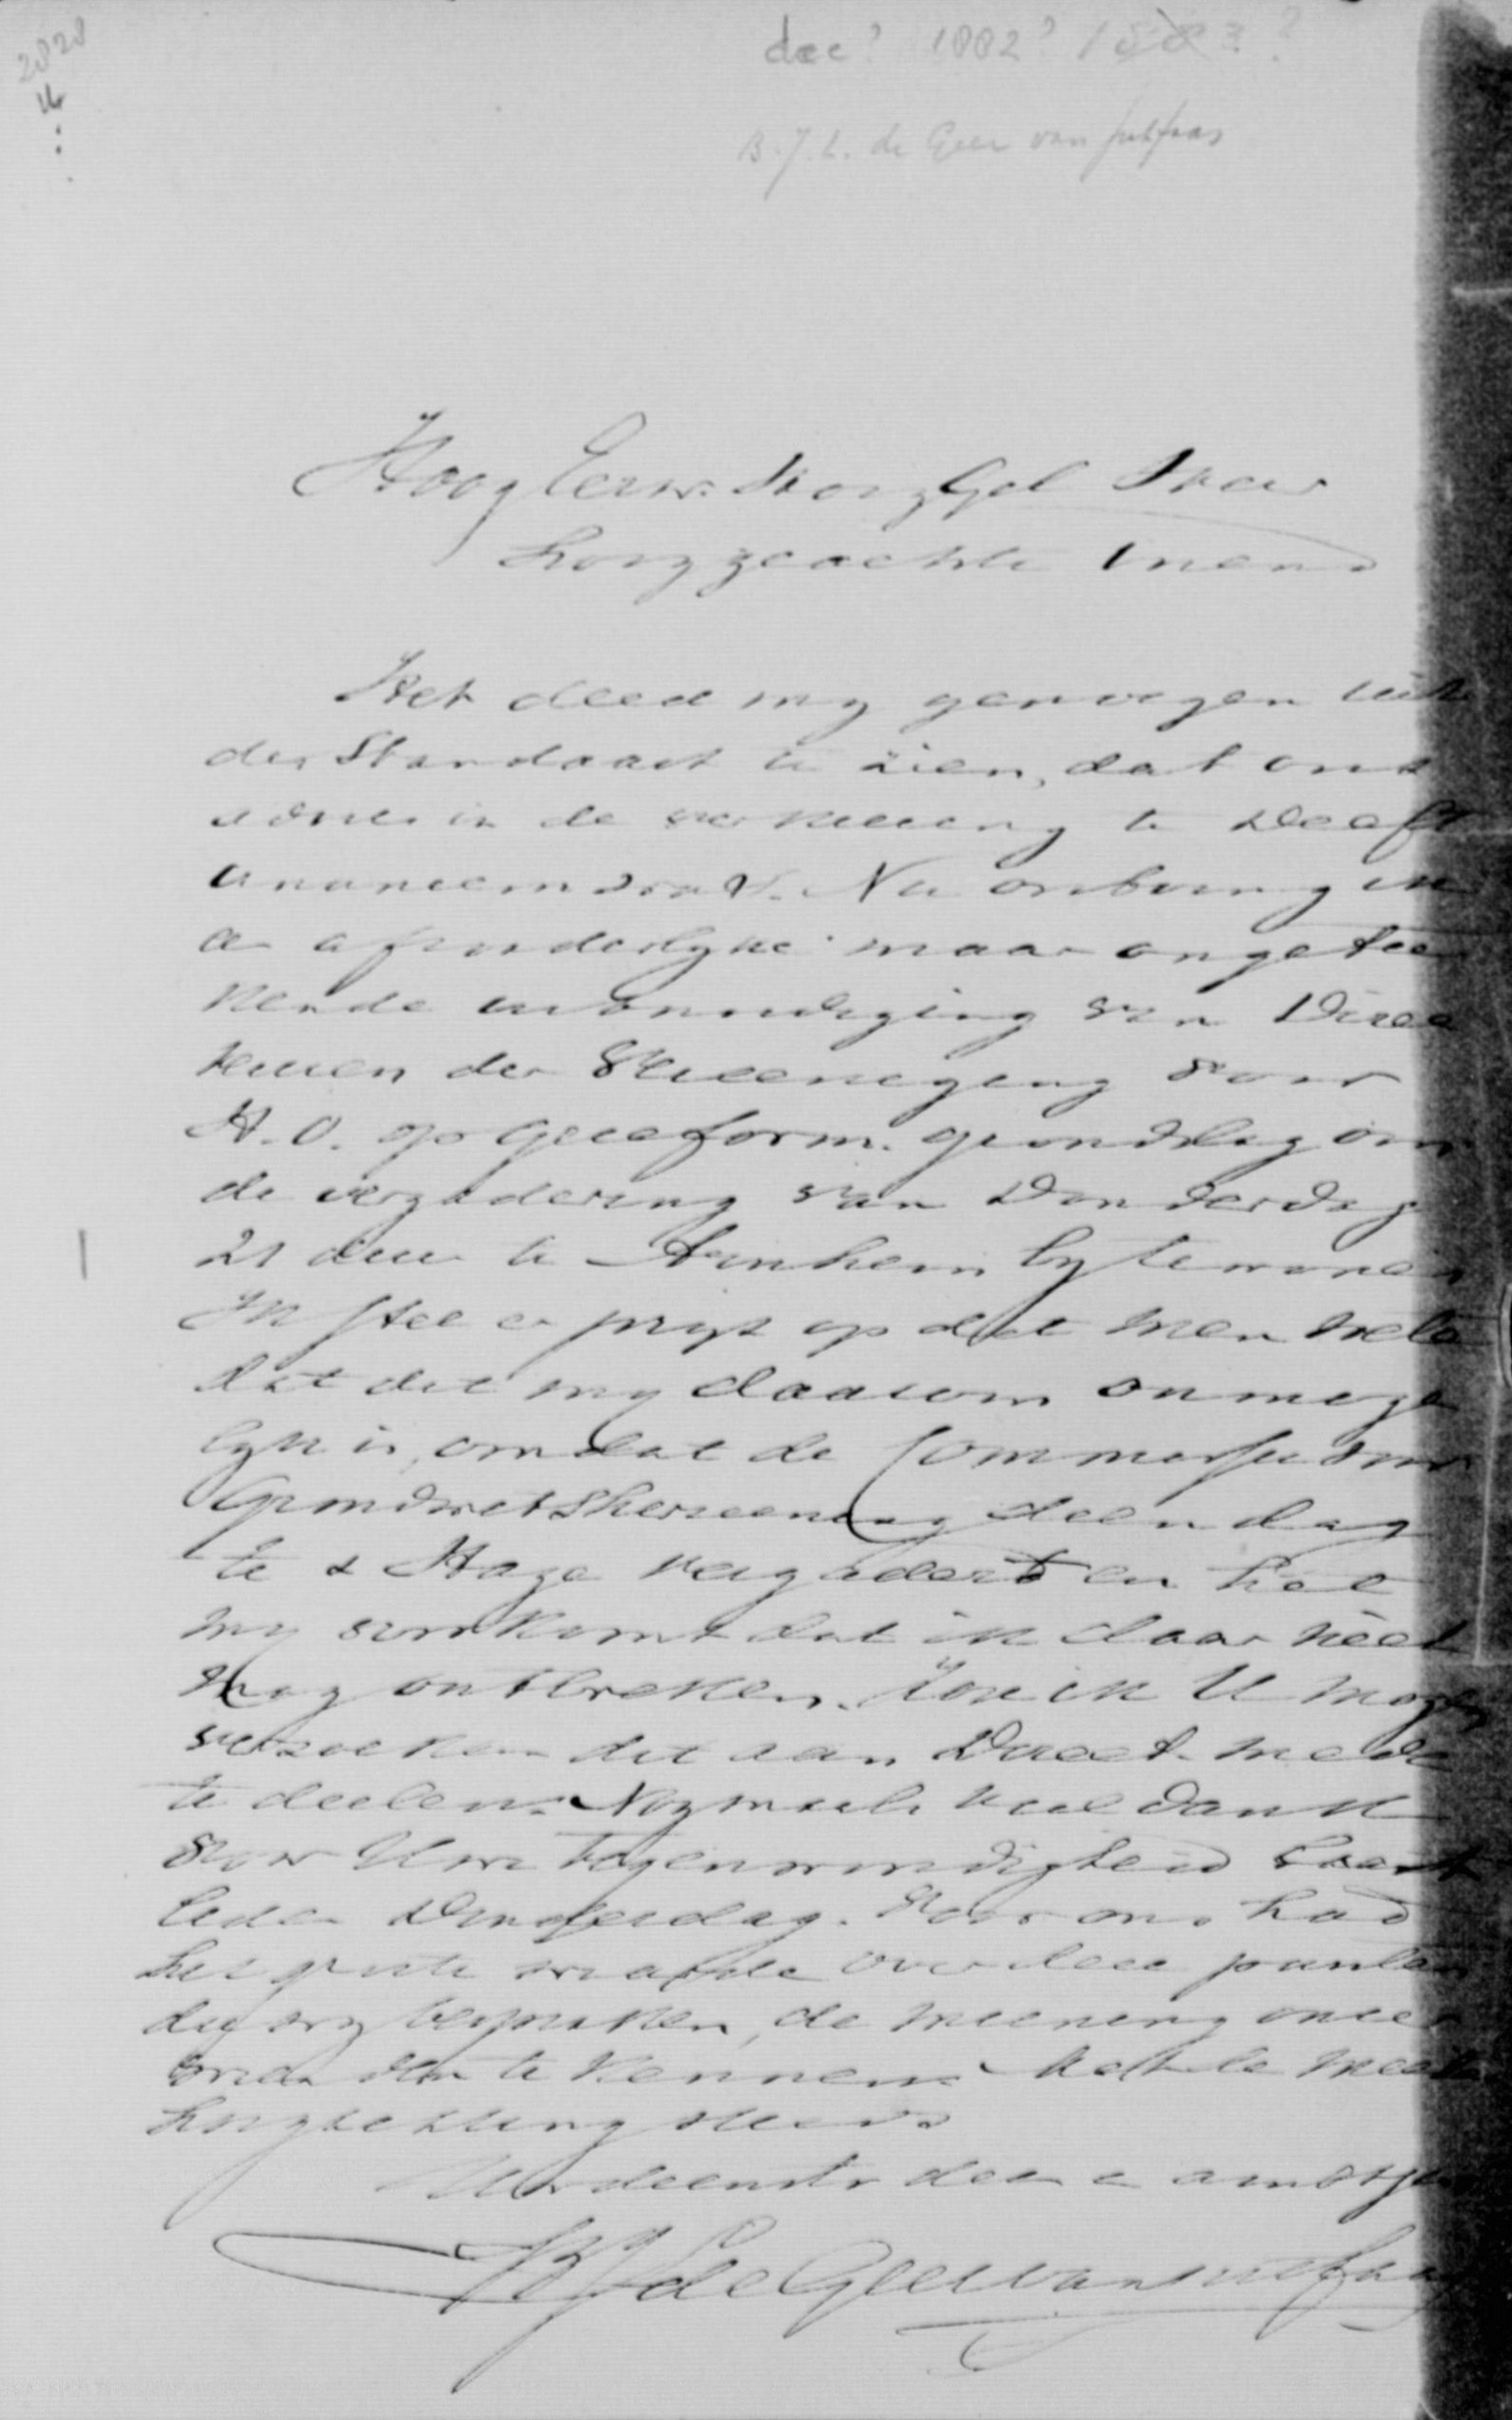 2828
dec? 1882? 1883?
B.J.L. de Geer van Jutfaas
HoogEerw. HoogGel Heer
Hooggeachte Vriend
Het deed my genoegen uit
der Standaart te zien, dat ons
advies in de
Nu ontving ik
de afzonderlyke maar ongetee
kende uitnoodiging van Direc
teuren der Vereeniging voor
H.O. op Gereform. grondslag om
de vergadering van Donderdag
21 dezer te Arnhem by te wonen
Ik stel er prys op dat men wete
dat dit my daarom onmoge
lyk is, omdat de Commissie voor
Grondwetsherziening dien dag
te s Hage vergadert en het
my voorkomt dat ik daar niet
mag ontbreken. Zou ik U mogen
verzoeken dit aan Direct. mede
te deelen. Nogmaals veel dank
voor Uwe tegenwoordigheid laatst
leden Donderdag. Voor ons had
het groote waarde over deze punten
die wy bespraken, de meening onzer
vrienden te kennen. Met de meeste
hoogachting steeds
Uw dienstv. dien. en ambtgen
BJL de Geer van Jutfaas